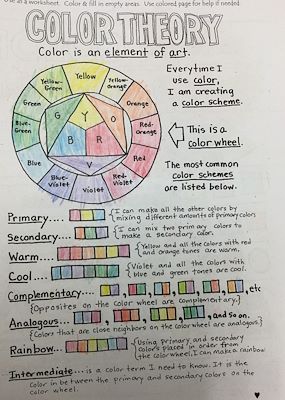 Use as a worksheet. Color & fill in empty areas. Use colored page for help if needed
COLOR THEORY
Color is an element of art.
Yellow
Yellow-Green
Yellow-Orange
Green
Orange
Blue-Green
Red-Orange
Blue
Red
Blue-Violet
Violet
Red-Violet
Y
G
O
B
R
V
Everytime I
use color,
I am creating
a color scheme.
This is a
color wheel.
The most common
color schemes
are listed below.
Primary.... {I can make all the other colors by
mixing different amounts of primary colors
Secondary.... {I can mix two primary colors to
make a secondary color.
Warm.... {Yellow and all the colors with red
and orange tones are warm.
Cool.... {Violet and all the colors with
blue and green tones are cool.
Complementary.... , , , , etc
{Opposites on the color wheel are complementary.}
Analogous.... , , , and so on.
{Colors that are close neighbors on the color wheel are analogous.}
Rainbow.... {Using primary and secondary
colors placed in order from
the color wheel, I can make a rainbow
Intermediate.... is a color term I need to know. It is the
color in between the primary and secondary colors on the
color wheel.